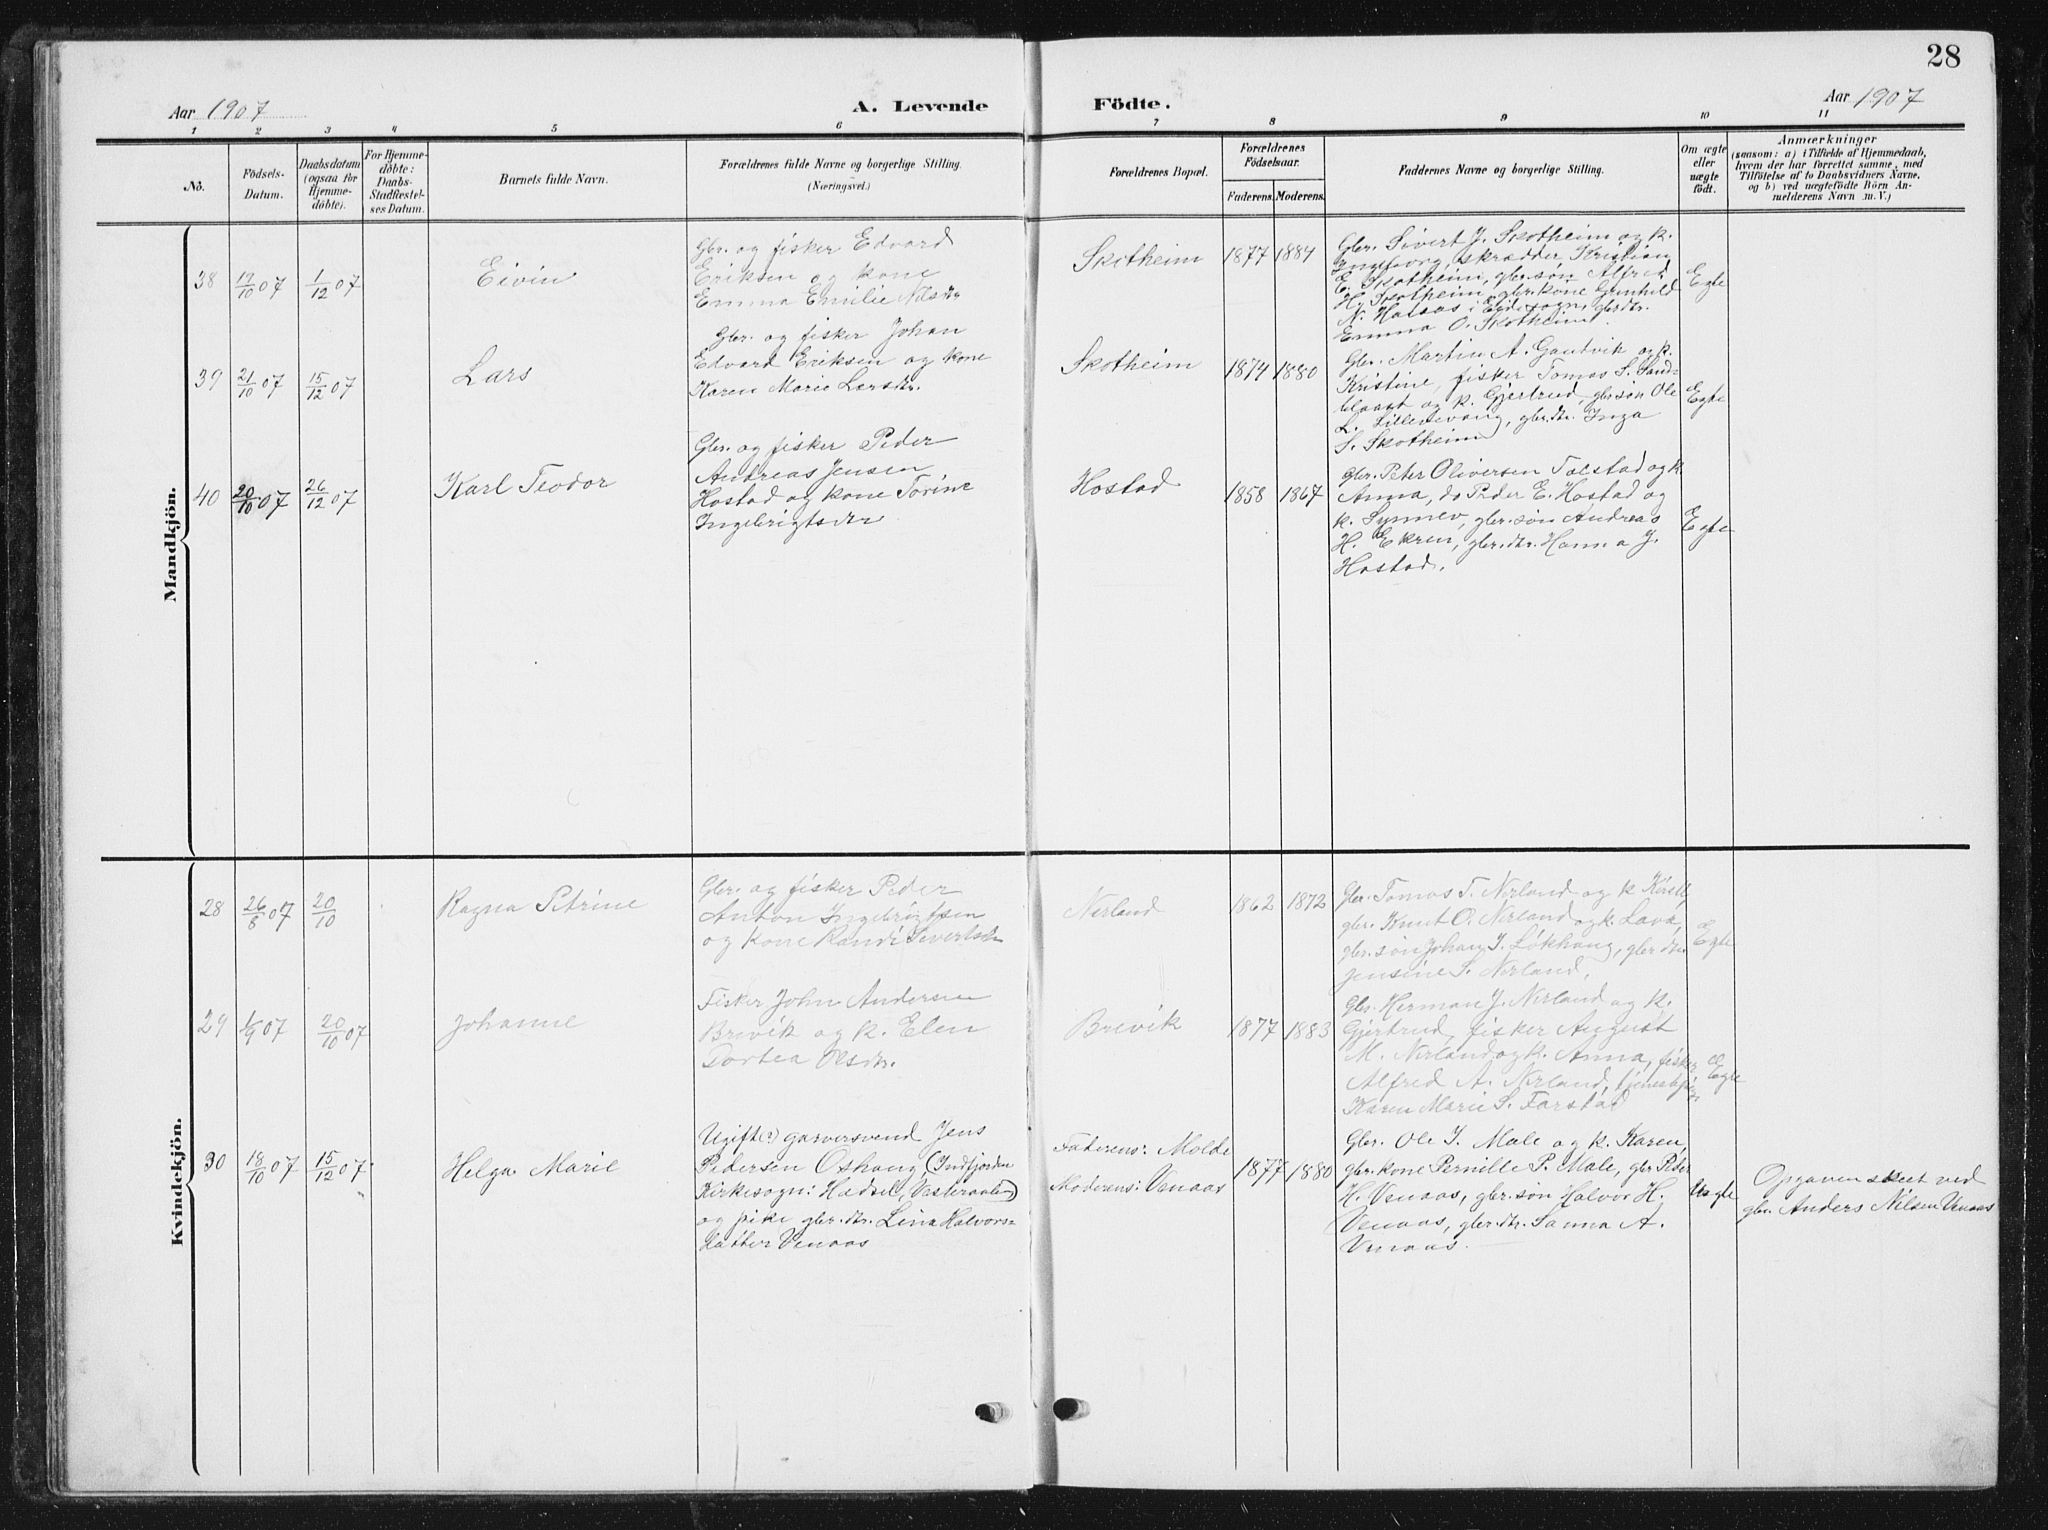 28
Aar 1907
A. Levende
Födte.
Aar 1907
1 2 3 4 5 6 7 8 9 10 11
No.
Födsels-
Datum.
Daabsdatum
(ogsaa for
Hjemme-
döbte).
For Hjemme-
döbte:
Daabs-
Stadfæstel-
ses Datum.
Barnets fulde Navn.
Forældrenes fulde Navne og borgerlige Stilling.
(Næringsvei.)
Forældrenes Bopæl.
Forældrenes
Födselsaar.
Faderens.
Moderens.
Faddernes Navne og borgerlige Stilling.
Om ægte
eller
uægte
födt.
Anmærkninger
(saasom: a) i Tilfælde af Hjemmedaab,
hvem der har forrettet samme, med
Tilföielse af to Daabsvidners Navne,
og b) ved uægtefödte Börn An-
melderens Navn m. V.)
Mandkjön.
38
17/10 07
1/12 07
Eivin
Gbr. og fisker Edvard
Eriksen og kone
Emma Emilie Nilsdtr
Skotheim
1877
1884
Gbr. Sivert J. Skotheim og k.
Ingeborg, skrædder Kristian
E. Skotheim, gbr.søn Alfred
H. Skotheim, gbr.kone Gunhild
N. Halaas i Eide sogn, gbr.dtr.
Emma O. Skotheim.
Egte
39
21/10 07
15/12 07
Lars
Gbr. og fisker Johan
Edvard Eriksen og kone
Karen Marie Larsdtr.
Skotheim
1874
1880
Gbr. Martin A. Gautvik og k.
Kristine, fisker Tomas S. Sand-
blaast og k. Gjertrud, gbr.søn Ole
L. Lillevevang, gbr.dtr. Inga
S. Skotheim
Egte
40
20/10 07
26/12 07
Karl Teodor
Gbr. og fisker Peder
Andreas Jensen
Hostad og kone Torine
Ingebrigtsdtr
Hostad
1858
1867
Gbr. Peter Oliversen Tolstad og k.
Anna, do Peder E. Hostad og
k. Synnev, gbr.søn Andreas
H. Ekren, gbr.dtr. Hanna J.
Hostad.
Egte
Kvindekjön.
28
26/8 07
20/10
Ragna Petrine
Gbr. og fisker Peder
Anton Ingebrigtsen
og kone Randi Sivertsdtr
Nerland
1862
1872
Gbr. Tomas T. Nerland og k. Kirsti,
gbr. Knut O. Nerland og k. Lava,
gbr.søn Johan J. Løkhaug, gbr.dtr.
Jensine S. Nerland.
Egte
29
1/9 07
20/10 07
Johanne
Fisker John Andersen
Brevik og k. Elen
Dortea Olsdtr.
Brevik
1877
1883
Gbr. Herman J. Nerland og k.
Gjertrud, fisker August
M. Nerland og k. Anna, fisker
Alfred A. Nerland, tjenestpige
Karen Marie S. Farstad
Egte
30
18/10 07
15/12 07
Helga Marie
Ugift(?) garversvend Jens
Pedersen Oshaug (Indfjorden
Kirkesogn: Hadsel, Vesteraalen)
og pike gbr.dtr. Lina Halvors-
datter Venaas
Faderens: Molde
Moderens: Venaas
1877
1880
Gbr. Ole I. Male og k. Karen,
gbr.kone Pernille P. Male, gbr. Peder
H. Venaas, gbr.søn Halvor H.
Venaas, gbr.dtr. Sanna A.
Venaas.
Uegte
Opgaven skeet ved
gbr. Anders Nilsen Venaas